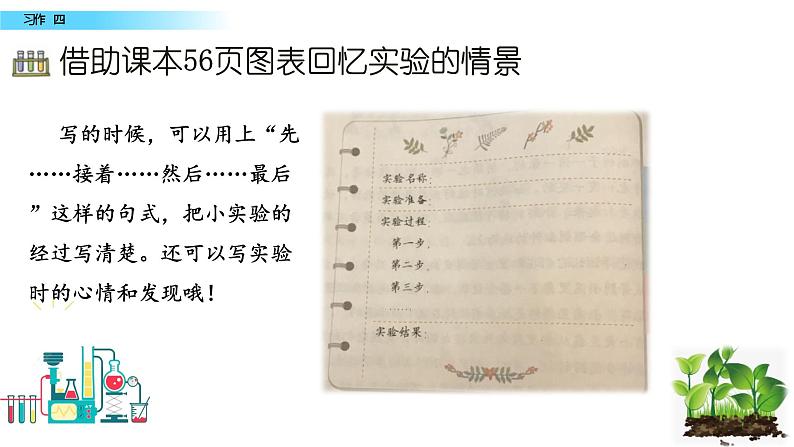 习作 四
借助课本56页图表回忆实验的情景
写的时候，可以用上“先
……接着……然后……最后
”这样的句式，把小实验的
经过写清楚。还可以写实验
时的心情和发现哦！
实验名称：
实验准备：
实验过程：
第一步，
第二步，
第三步，
……
实验结果：